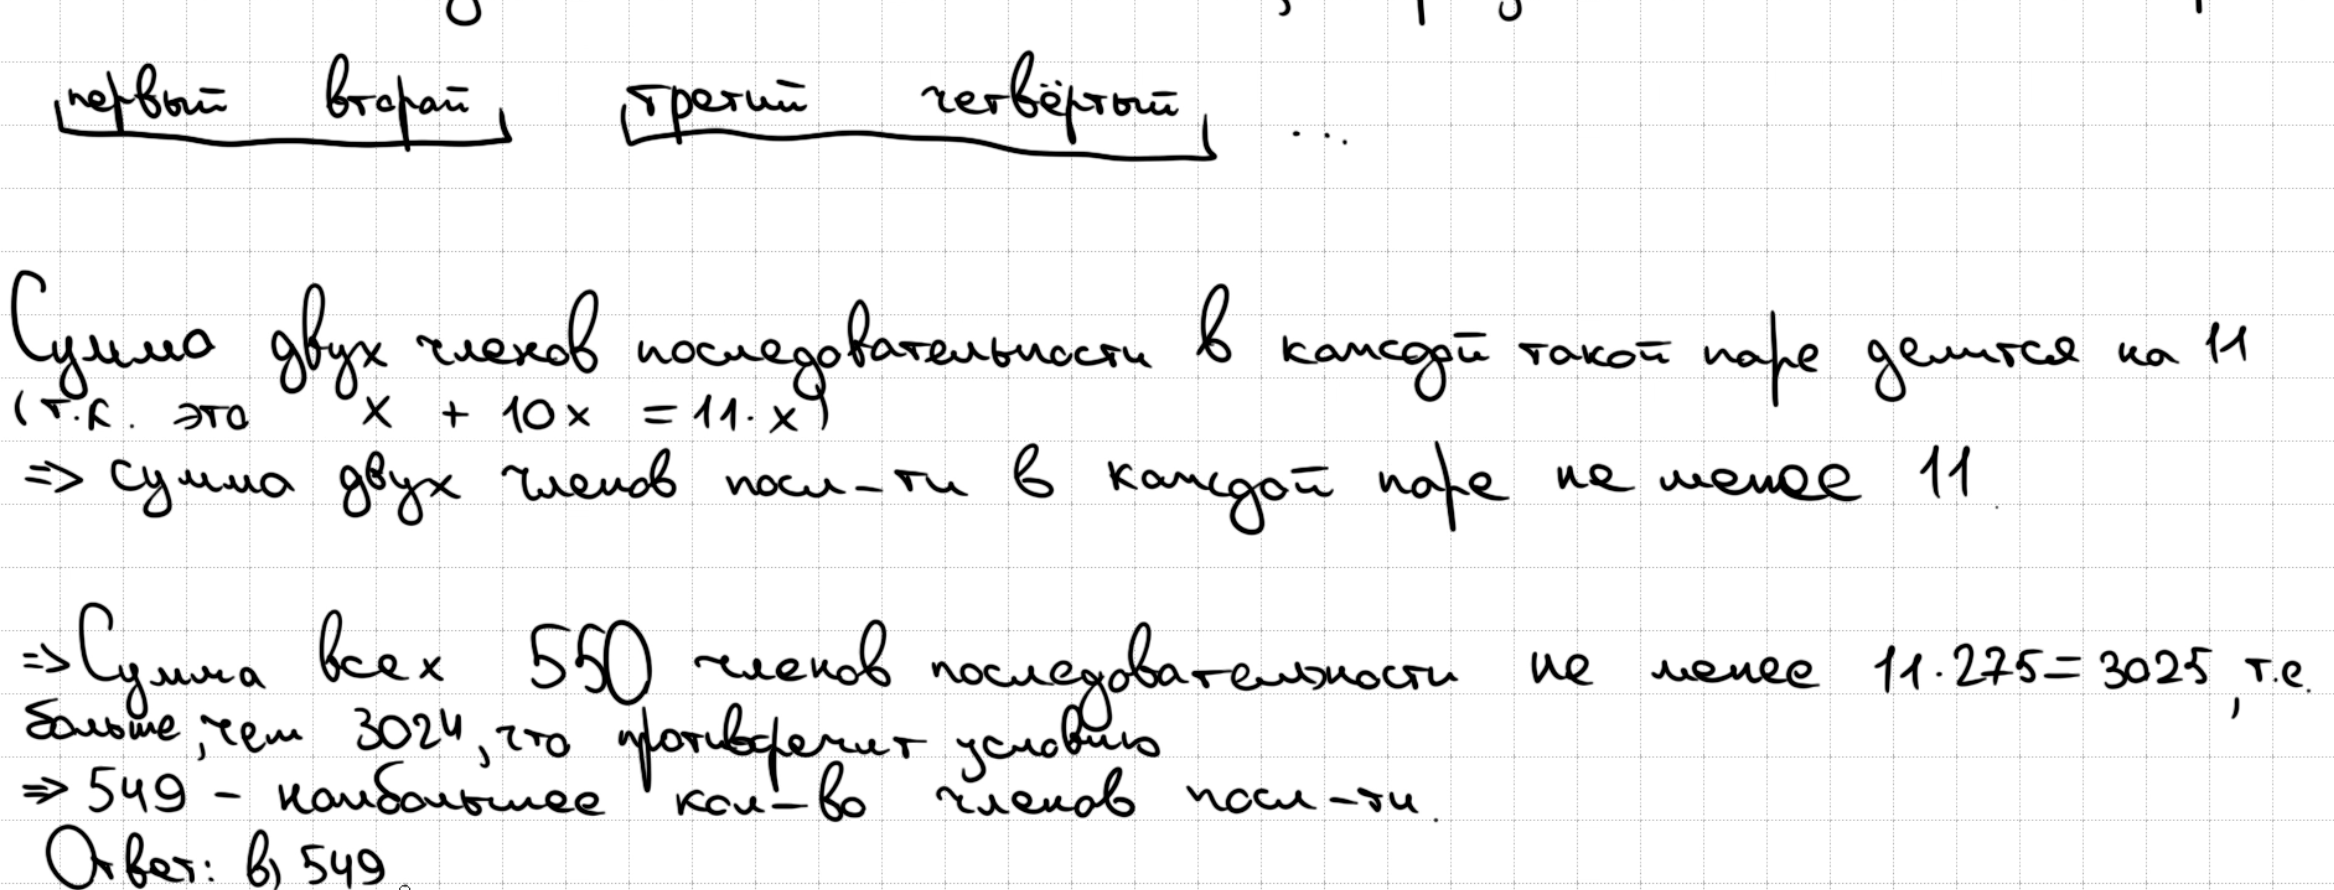 первый второй третий четвёртый ...
Сумма двух членов последовательности в каждой такой паре делится на 11
(т.к. это x + 10x = 11·x)
=> сумма двух членов посл-ти в каждой паре не менее 11.
=> Сумма всех 550 членов последовательности не менее 11·275 = 3025, т.е.
больше, чем 3024, что противоречит условию
=> 549 - наибольшее кол-во членов посл-ти.
Ответ: в) 549.